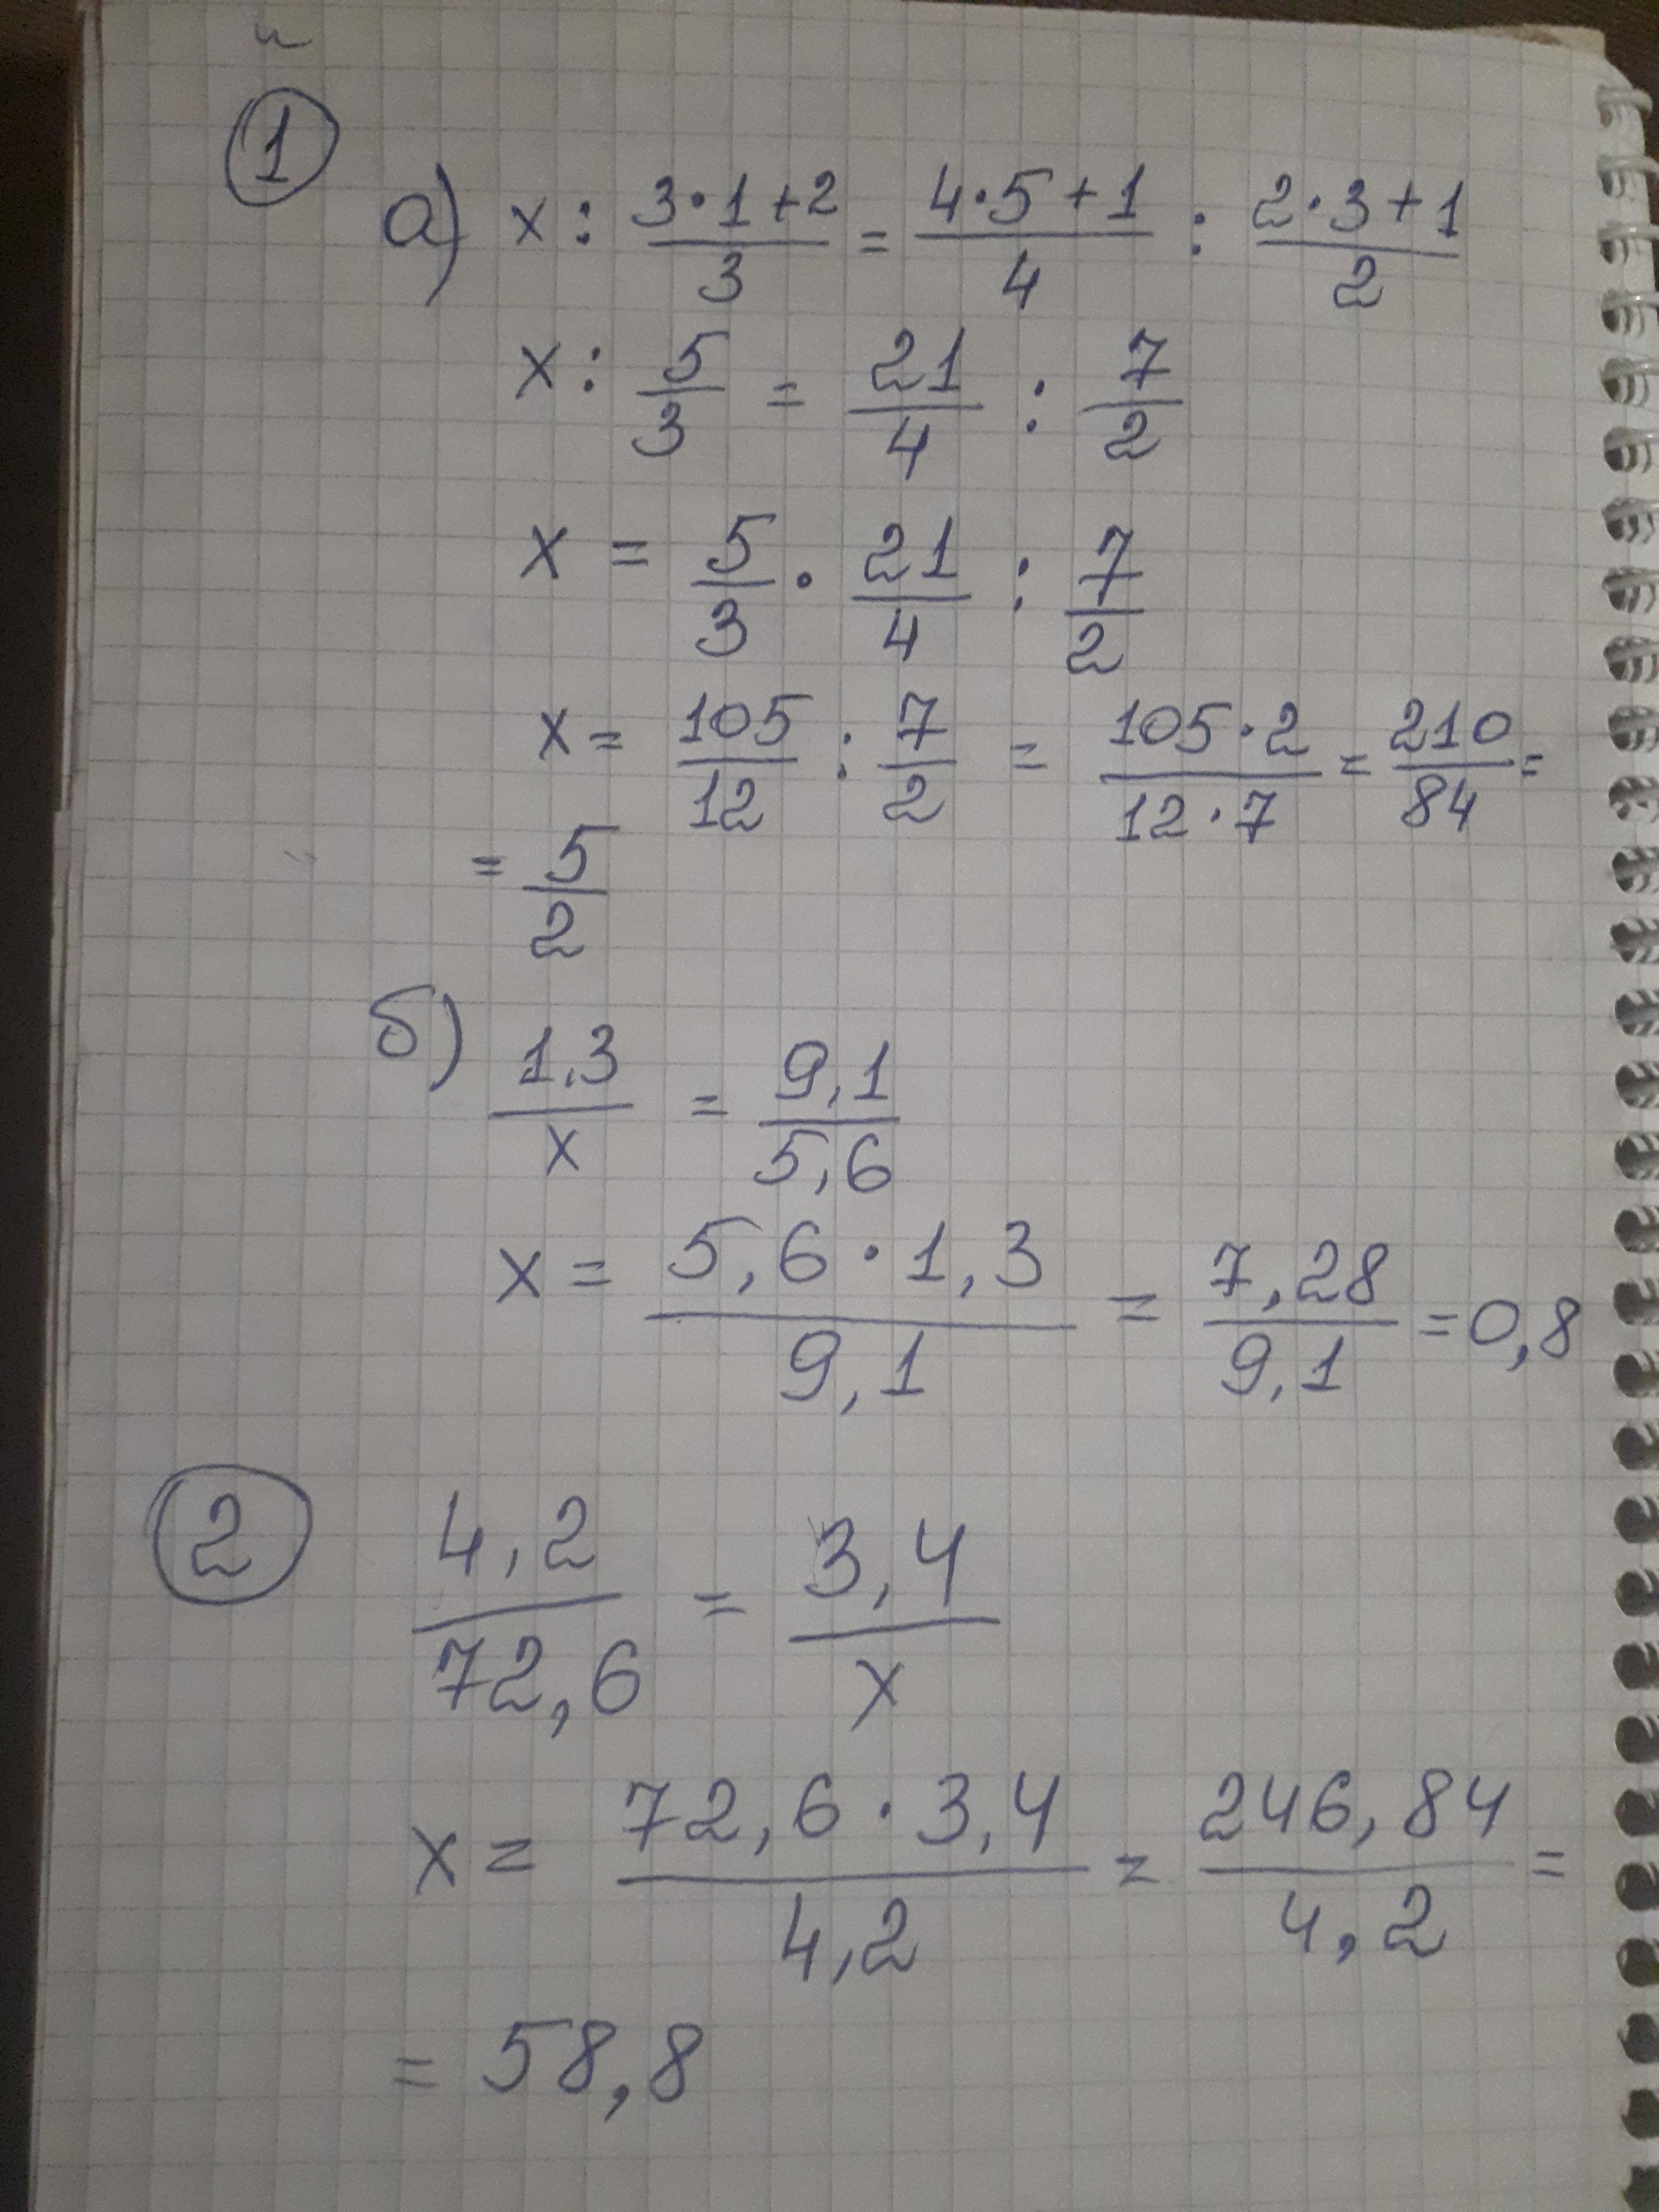 1
а) x : (3·1+2)/3 = (4·5+1)/4 : (2·3+1)/2
x : 5/3 = 21/4 : 7/2
x = 5/3 · 21/4 : 7/2
x = 105/12 : 7/2 = (105·2)/(12·7) = 210/84 =
= 5/2
б) 1,3/x = 9,1/5,6
x = (5,6·1,3)/9,1 = 7,28/9,1 = 0,8
2 4,2/72,6 = 3,4/x
x = (72,6·3,4)/4,2 = 246,84/4,2 =
= 58,8